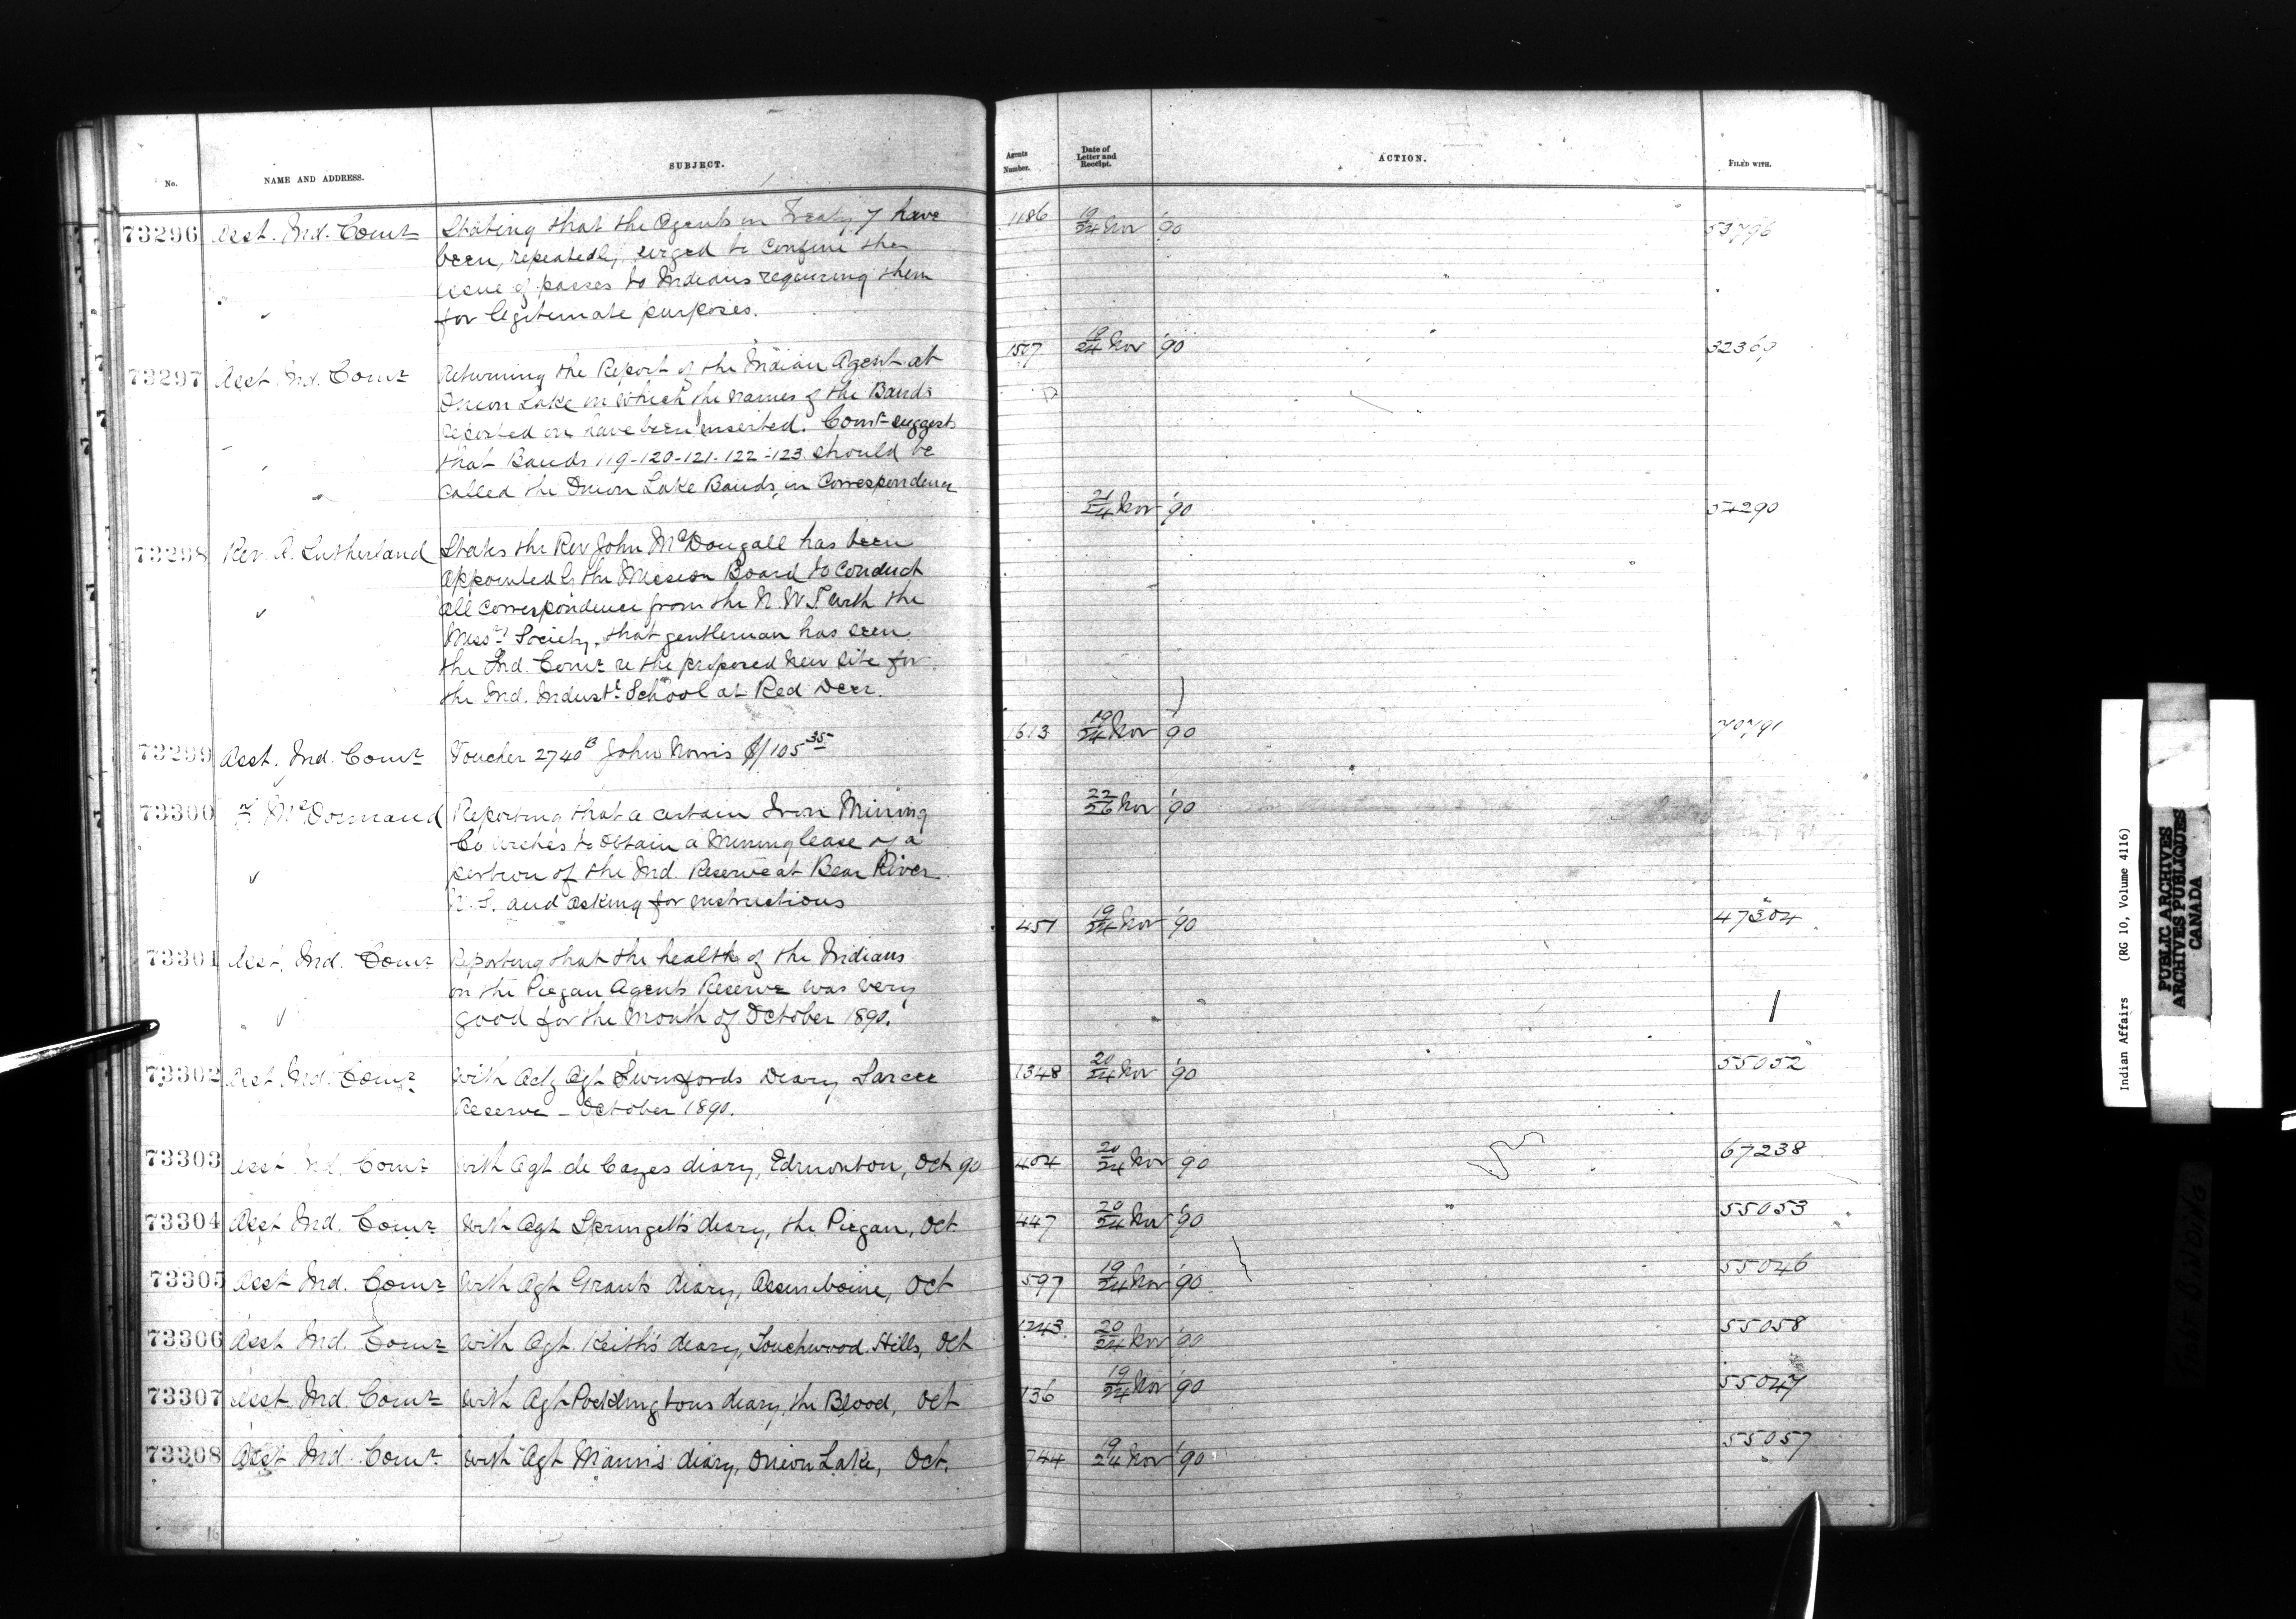 No. NAME AND ADDRESS. SUBJECT. Agents Number. Date of Letter and Receipt. ACTION. FILED WITH.
73296 Asst. Ind. Comr Stating that the Agents in Treaty 7 have 1186 19/24 Nov '90 53796
been, repeatedly, urged to confine the
issue of passes to Indians requiring them
for legitimate purposes.
73297 Asst Ind. Comr Returning the Report of the Indian Agent at 1507 19/24 Nov '90 32369
Onion Lake in which the names of the Bands
reported on have been inserted. Comr suggests
that Bands 119-120-121-122-123 should be
called the Onion Lake Bands, in Correspondence
73298 Rev. A. Sutherland States the Rev John McDougall has been 21/24 Nov '90 57290
appointed by the Mission Board to conduct
all correspondence from the N.W.T. with the
Missy Society, that gentleman has seen
the Ind. Comr re the proposed new site for
the Ind. Industl School at Red Deer.
73299 Asst. Ind. Comr Voucher 2740 B John Norris $/105 35 1613 19/24 Nov '90 70791
73300 McDormand Reporting that a certain Iron Mining 22/26 Nov '90
Co wishes to obtain a mining lease of a
portion of the Ind. Reserve at Bear River
N.S. and asking for instructions
73301 Asst. Ind. Comr Reporting that the health of the Indians 451 19/24 Nov '90 47304
on the Piegan Agents Reserve was very
good for the month of October 1890.
73302 Asst Ind. Comr With Actg Agt Swinfords Diary Sarcee 1348 20/24 Nov '90 55052
Reserve - October 1890.
73303 Asst Ind Comr With Agt de Cazes diary, Edmonton, Oct 90 404 20/24 Nov '90 67238
73304 Asst Ind. Comr With Agt Springett's diary, the Piegan, Oct 447 20/24 Nov '90 55053
73305 Asst Ind. Comr With Agt Grants diary, Assiniboine, Oct 597 19/24 Nov '90 55046
73306 Asst Ind. Comr With Agt Keith's diary, Touchwood Hills, Oct 1243 20/24 Nov '90 55058
73307 Asst Ind. Comr With Agt Pocklingtons diary, the Blood, Oct 136 19/24 Nov '90 55047
73308 Asst Ind. Comr With Agt Mann's diary, Onion Lake, Oct. 744 19/24 Nov '90 55057
16
Indian Affairs (RG 10, Volume 4116)
PUBLIC ARCHIVES
ARCHIVES PUBLIQUES
CANADA